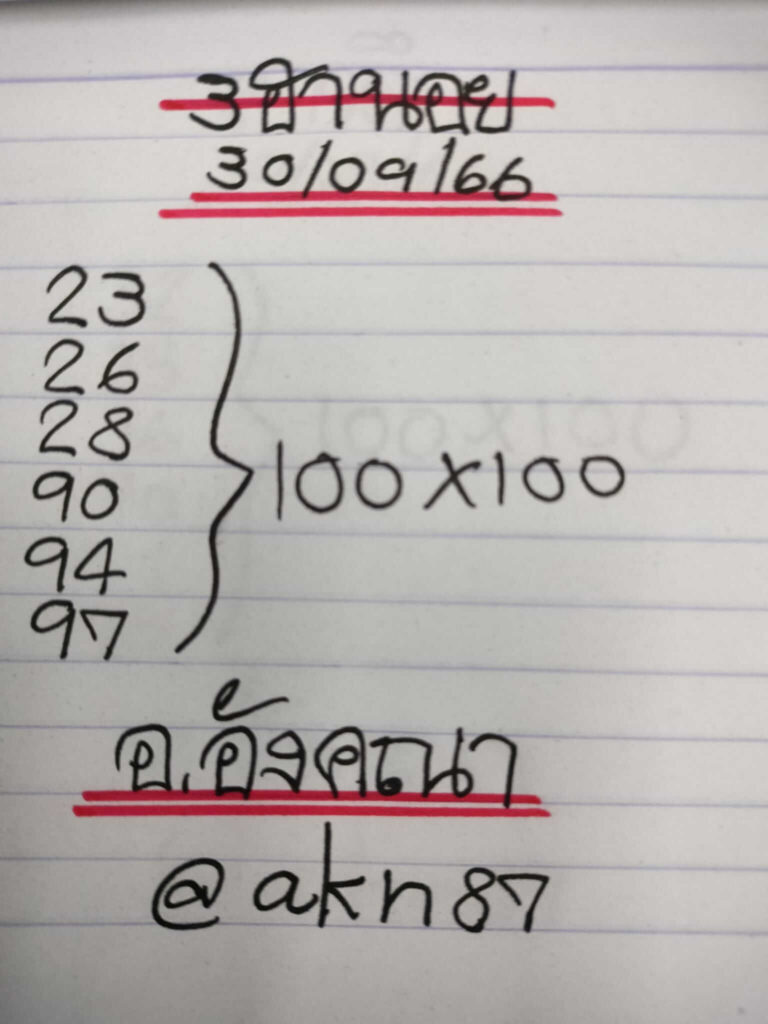 ฮานอย
30/09/66
23
26
28
90
94
97
100 X 100
อ.อังคณา
@akn87